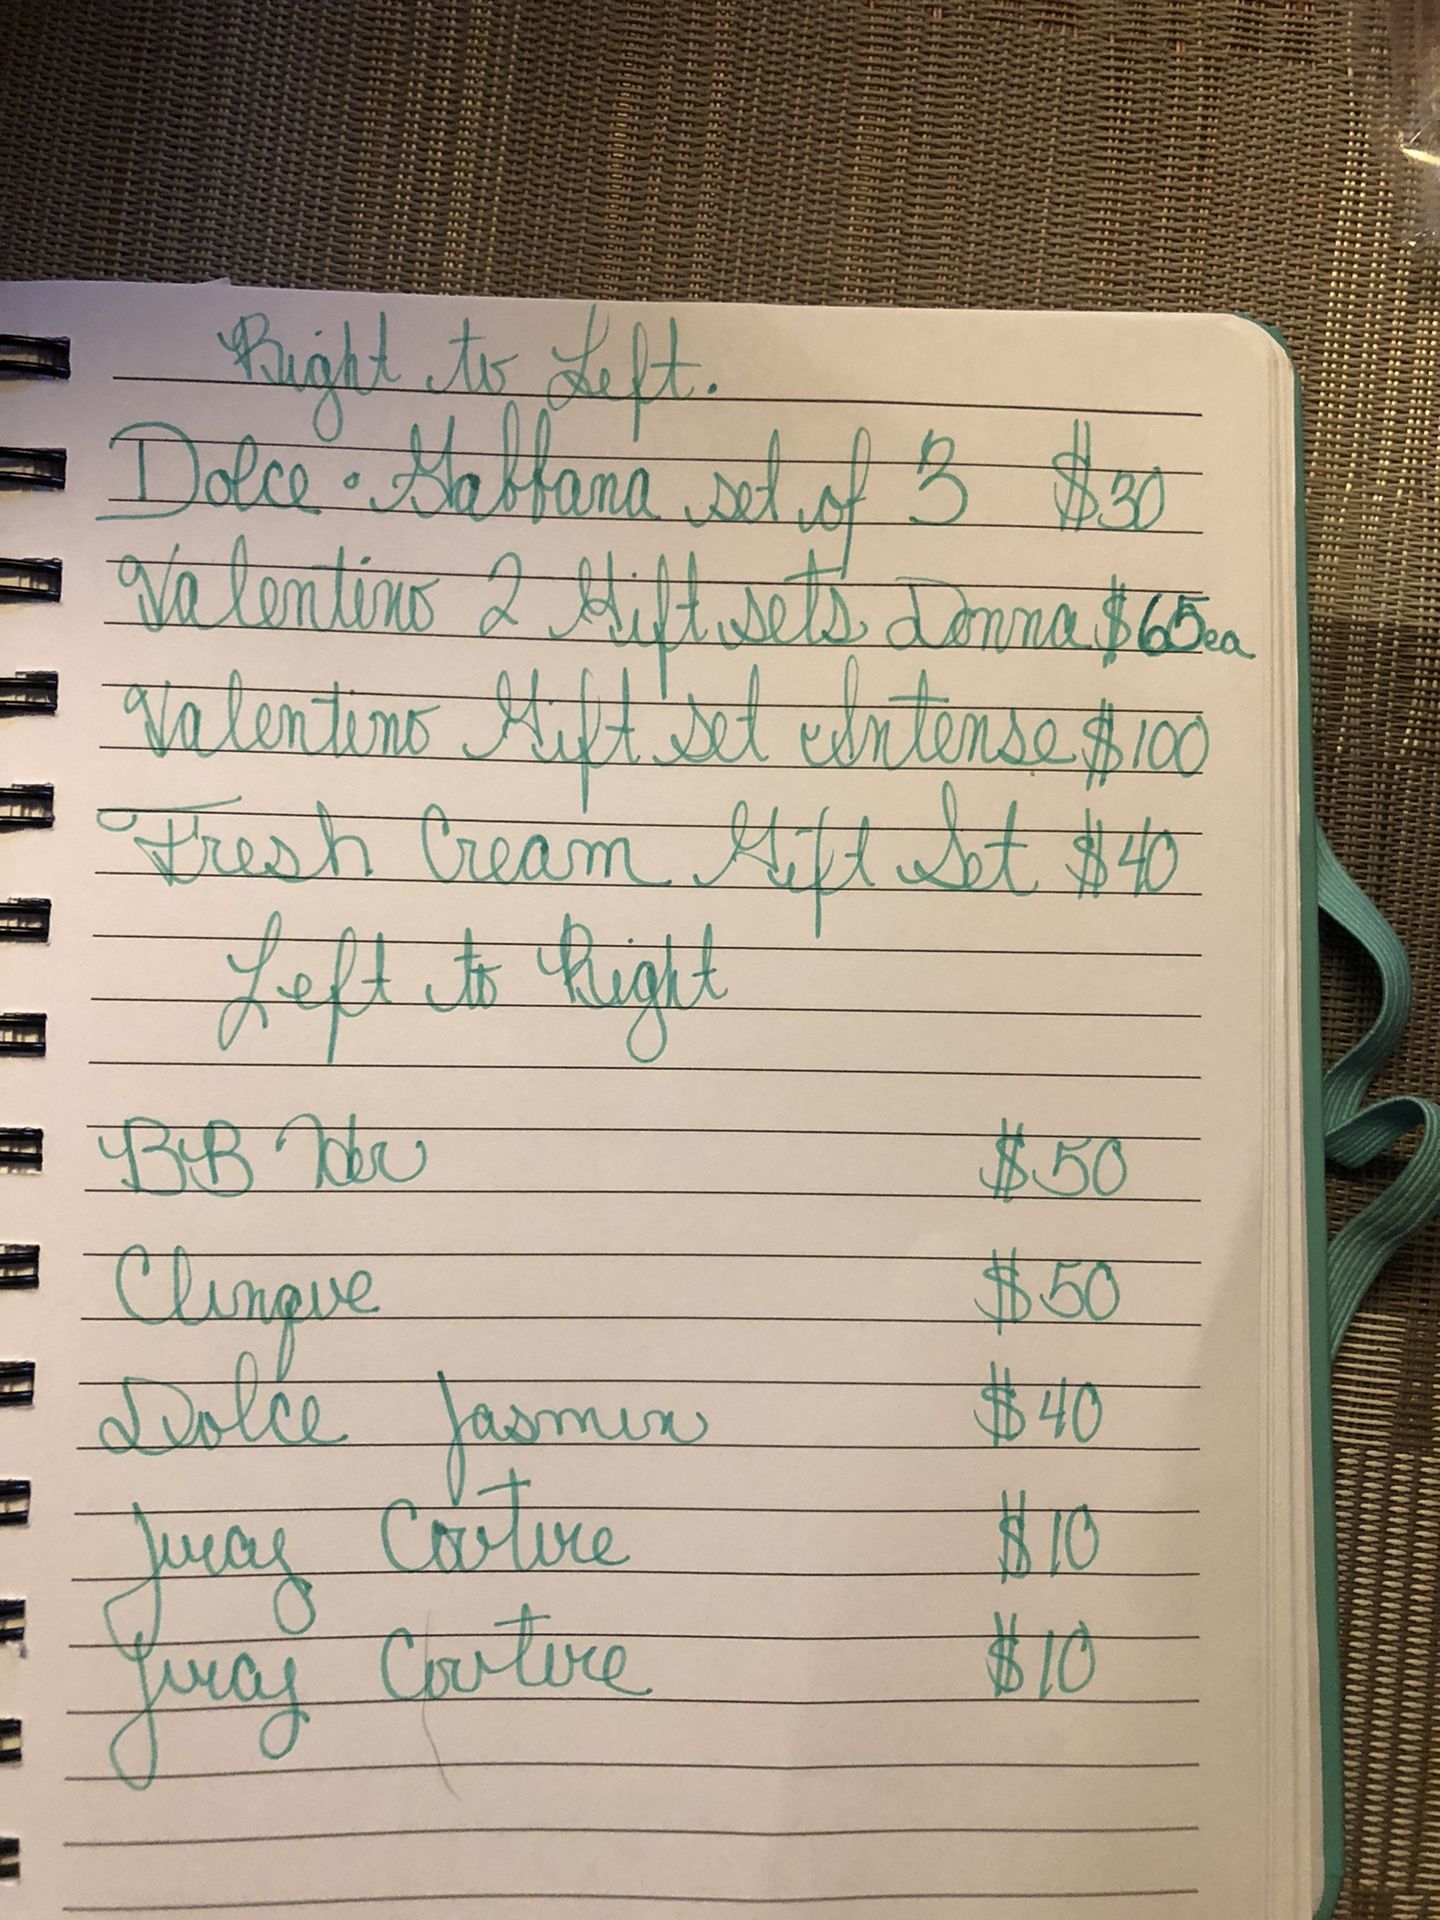 Right to Left.
Dolce • Gabbana set of 3 $30
Valentino 2 Gift sets Donna $65ea
Valentino Gift set Intense $100
Fresh Cream Gift Set $40
Left to Right
BB $50
Clinque $50
Dolce Jasmin $40
Juicy Couture $10
Juicy Couture $10